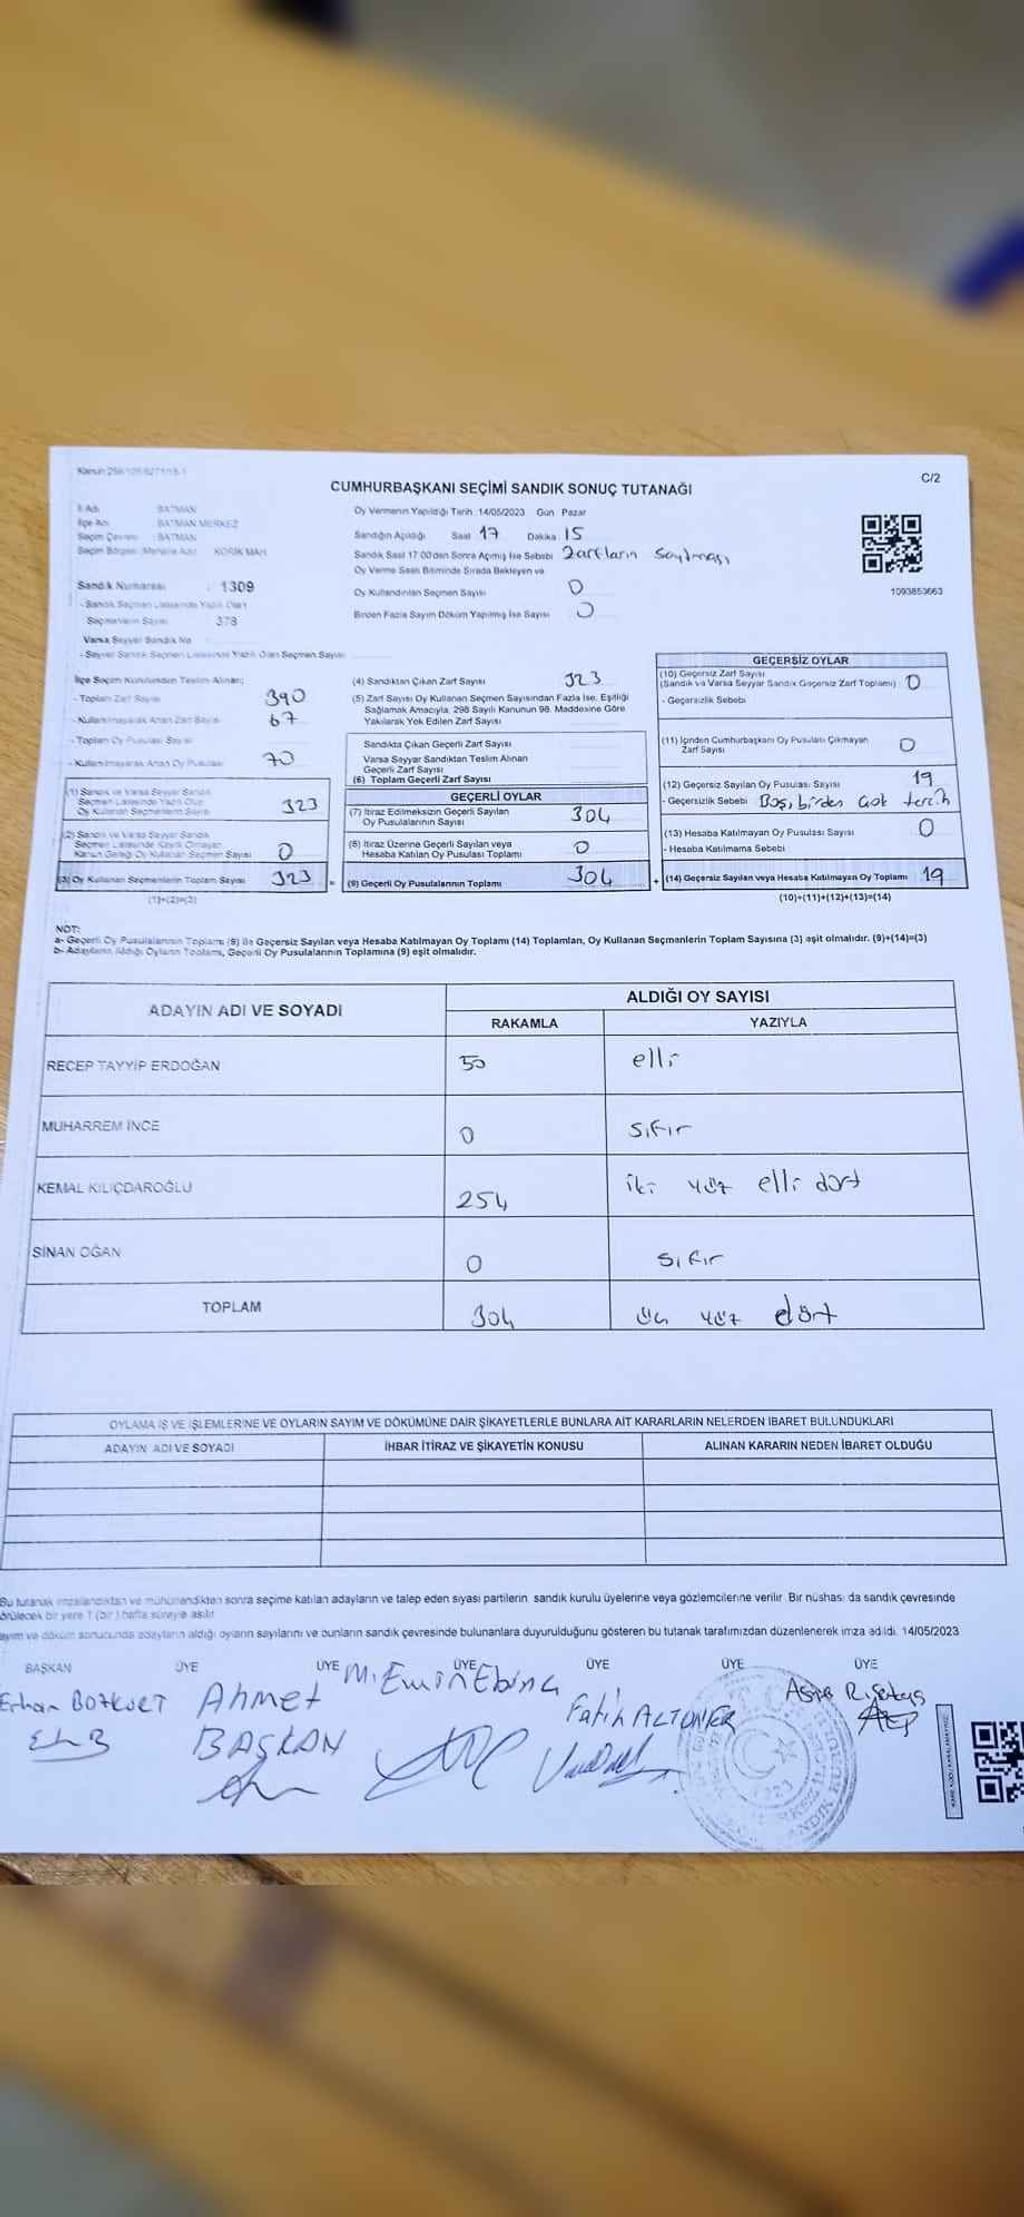 C/2
CUMHURBAŞKANI SEÇİMİ SANDIK SONUÇ TUTANAĞI
İl Adı : BATMAN
İlçe Adı : BATMAN MERKEZ
Seçim Çevresi : BATMAN
KORİK MAH.
Oy Vermenin Yapıldığı Tarih :14/05/2023 Gün Pazar
Sandığın Açıldığı Saat 17 Dakika 15
Sandık Saat 17:00'den Sonra Açılmış İse Sebebi Zarfların Sayılması
Oy Verme Saati Bitiminde Sırada Bekleyen ve
Oy Kullandırılan Seçmen Sayısı 0
Birden Fazla Sayım Döküm Yapılmış İse Sayısı 0
1093853663
Sandık Numarası : 1309
- Sandık Seçmen Listesinde Yazılı Olan
Seçmenlerin Sayısı 378
Varsa Seyyar Sandık No
- Seyyar Sandık Seçmen Listesinde Yazılı Olan Seçmen Sayısı
İlçe Seçim Kurulundan Teslim Alınan;
- Toplam Zarf Sayısı 390
- Kullanılmayarak Artan Zarf Sayısı 67
- Toplam Oy Pusulası Sayısı
- Kullanılmayarak Artan Oy Pusulası 70
(1) Sandık ve Varsa Seyyar Sandık
Seçmen Listesinde Yazılı Olup
Oy Kullanan Seçmenlerin Sayısı 323
(2) Sandık ve Varsa Seyyar Sandık
Seçmen Listesinde Kayıtlı Olmayan
Kanun Gereği Oy Kullanan Seçmen Sayısı 0
(3) Oy Kullanan Seçmenlerin Toplam Sayısı 323
(1)+(2)=(3)
(4) Sandıktan Çıkan Zarf Sayısı 323
(5) Zarf Sayısı Oy Kullanan Seçmen Sayısından Fazla İse, Eşitliği
Sağlamak Amacıyla, 298 Sayılı Kanunun 98. Maddesine Göre
Yakılarak Yok Edilen Zarf Sayısı
Sandıkta Çıkan Geçerli Zarf Sayısı
Varsa Seyyar Sandıktan Teslim Alınan
Geçerli Zarf Sayısı
(6) Toplam Geçerli Zarf Sayısı
GEÇERLİ OYLAR
(7) İtiraz Edilmeksizin Geçerli Sayılan
Oy Pusulalarının Sayısı 304
(8) İtiraz Üzerine Geçerli Sayılan veya
Hesaba Katılan Oy Pusulası Toplamı 0
= (9) Geçerli Oy Pusulalarının Toplamı 304
GEÇERSİZ OYLAR
(10) Geçersiz Zarf Sayısı
(Sandık ve Varsa Seyyar Sandık Geçersiz Zarf Toplamı) 0
- Geçersizlik Sebebi
(11) İçinden Cumhurbaşkanı Oy Pusulası Çıkmayan
Zarf Sayısı 0
(12) Geçersiz Sayılan Oy Pusulası Sayısı 19
- Geçersizlik Sebebi Boş, birden çok tercih
(13) Hesaba Katılmayan Oy Pusulası Sayısı 0
- Hesaba Katılmama Sebebi
+ (14) Geçersiz Sayılan veya Hesaba Katılmayan Oy Toplamı 19
(10)+(11)+(12)+(13)=(14)
NOT:
a- Geçerli Oy Pusulalarının Toplamı (9) ile Geçersiz Sayılan veya Hesaba Katılmayan Oy Toplamı (14) Toplamları, Oy Kullanan Seçmenlerin Toplam Sayısına (3) eşit olmalıdır. (9)+(14)=(3)
b- Adayların Aldığı Oyların Toplamı, Geçerli Oy Pusulalarının Toplamına (9) eşit olmalıdır.
ADAYIN ADI VE SOYADI ALDIĞI OY SAYISI
RAKAMLA YAZIYLA
RECEP TAYYİP ERDOĞAN 50 elli
MUHARREM İNCE 0 sıfır
KEMAL KILIÇDAROĞLU 254 iki yüz elli dört
SİNAN OĞAN 0 sıfır
TOPLAM 304 üç yüz dört
OYLAMA İŞ VE İŞLEMLERİNE VE OYLARIN SAYIM VE DÖKÜMÜNE DAİR ŞİKAYETLERLE BUNLARA AİT KARARLARIN NELERDEN İBARET BULUNDUKLARI
ADAYIN ADI VE SOYADI İHBAR İTİRAZ VE ŞİKAYETİN KONUSU ALINAN KARARIN NEDEN İBARET OLDUĞU
Bu tutanak imzalandıktan ve mühürlendikten sonra seçime katılan adayların ve talep eden siyasi partilerin sandık kurulu üyelerine veya gözlemcilerine verilir. Bir nüshası da sandık çevresinde
görülecek bir yere 1 (bir) hafta süreyle asılır.
Sayım ve döküm sonucunda adayların aldığı oyların sayılarını ve bunların sandık çevresinde bulunanlara duyurulduğunu gösteren bu tutanak tarafımızdan düzenlenerek imza edildi. 14/05/2023
BAŞKAN ÜYE ÜYE ÜYE ÜYE ÜYE ÜYE
Erhan BOZKURT Ahmet BAŞKAN M. Emin Ebinç Fatih ALTUNER